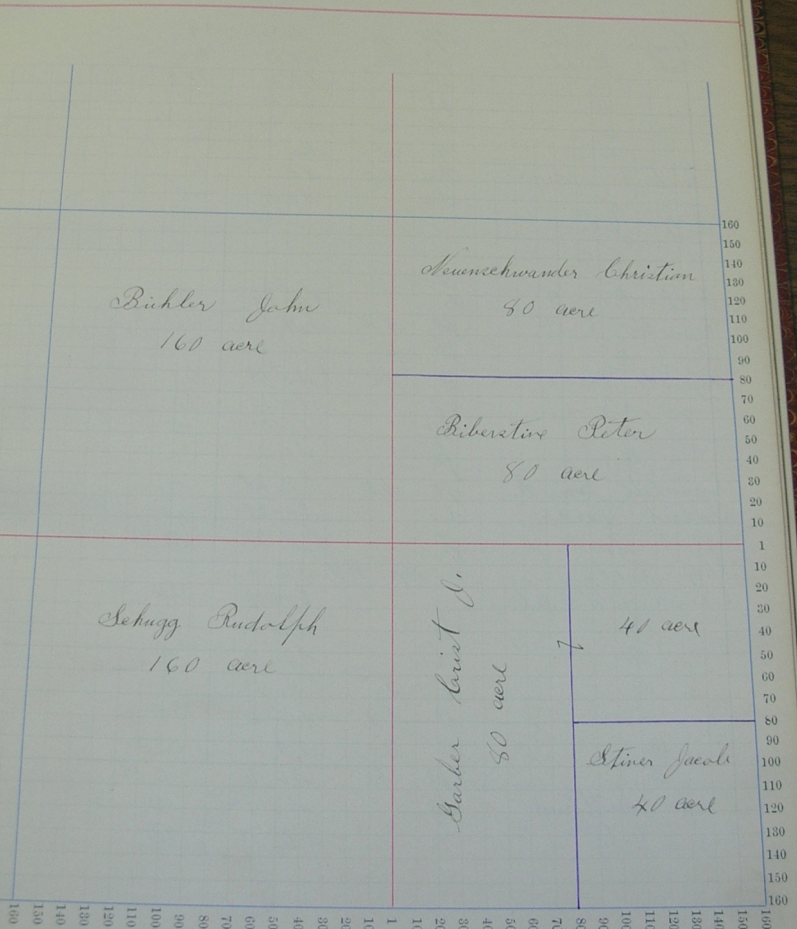 Neuenschwander Christian
80 acre
Bichler John
160 acre
Biberstine Peter
80 acre
Schugg Rudolph
160 acre
Garber Crist J.
80 acre
40 acre
Stiner Jacob
40 acre
160
150
140
130
120
110
100
90
80
70
60
50
40
30
20
10
1
10
20
30
40
50
60
70
80
90
100
110
120
130
140
150
160
160 150 140 130 120 100 90 80 70 60 50 40 30 20 10 1 10 20 30 40 50 60 70 80 90 100 110 120 130 140 150 160